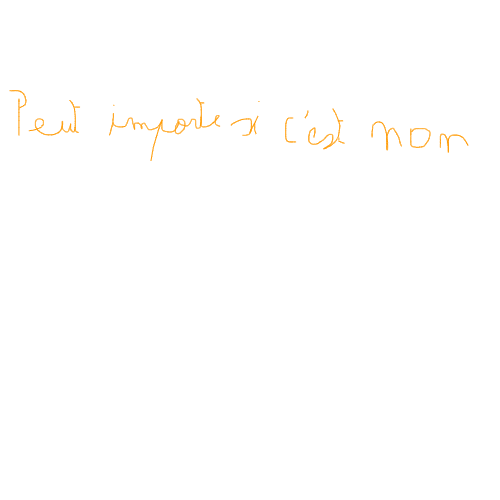 Peut importe si c'est non